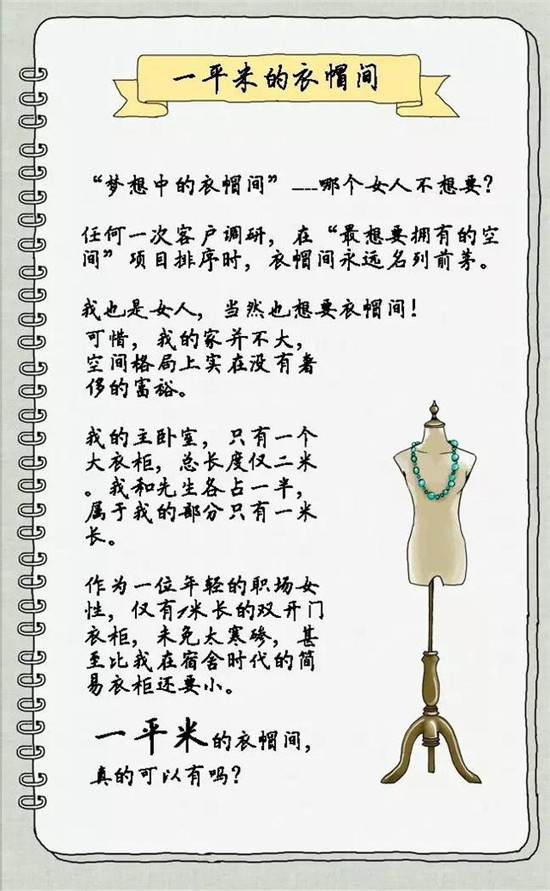 一平米的衣帽间
“梦想中的衣帽间”---哪个女人不想要?
任何一次客户调研，在“最想要拥有的空
间”项目排序时，衣帽间永远名列前茅。
我也是女人，当然也想要衣帽间!
可惜，我的家并不大，
空间格局上实在没有奢
侈的富裕。
我的主卧室，只有一个
大衣柜，总长度仅二米
。我和先生各占一半，
属于我的部分只有一米
长。
作为一位年轻的职场女
性，仅有1米长的双开门
衣柜，未免太寒碜，甚
至比我在宿舍时代的简
易衣柜还要小。
一平米的衣帽间，
真的可以有吗?